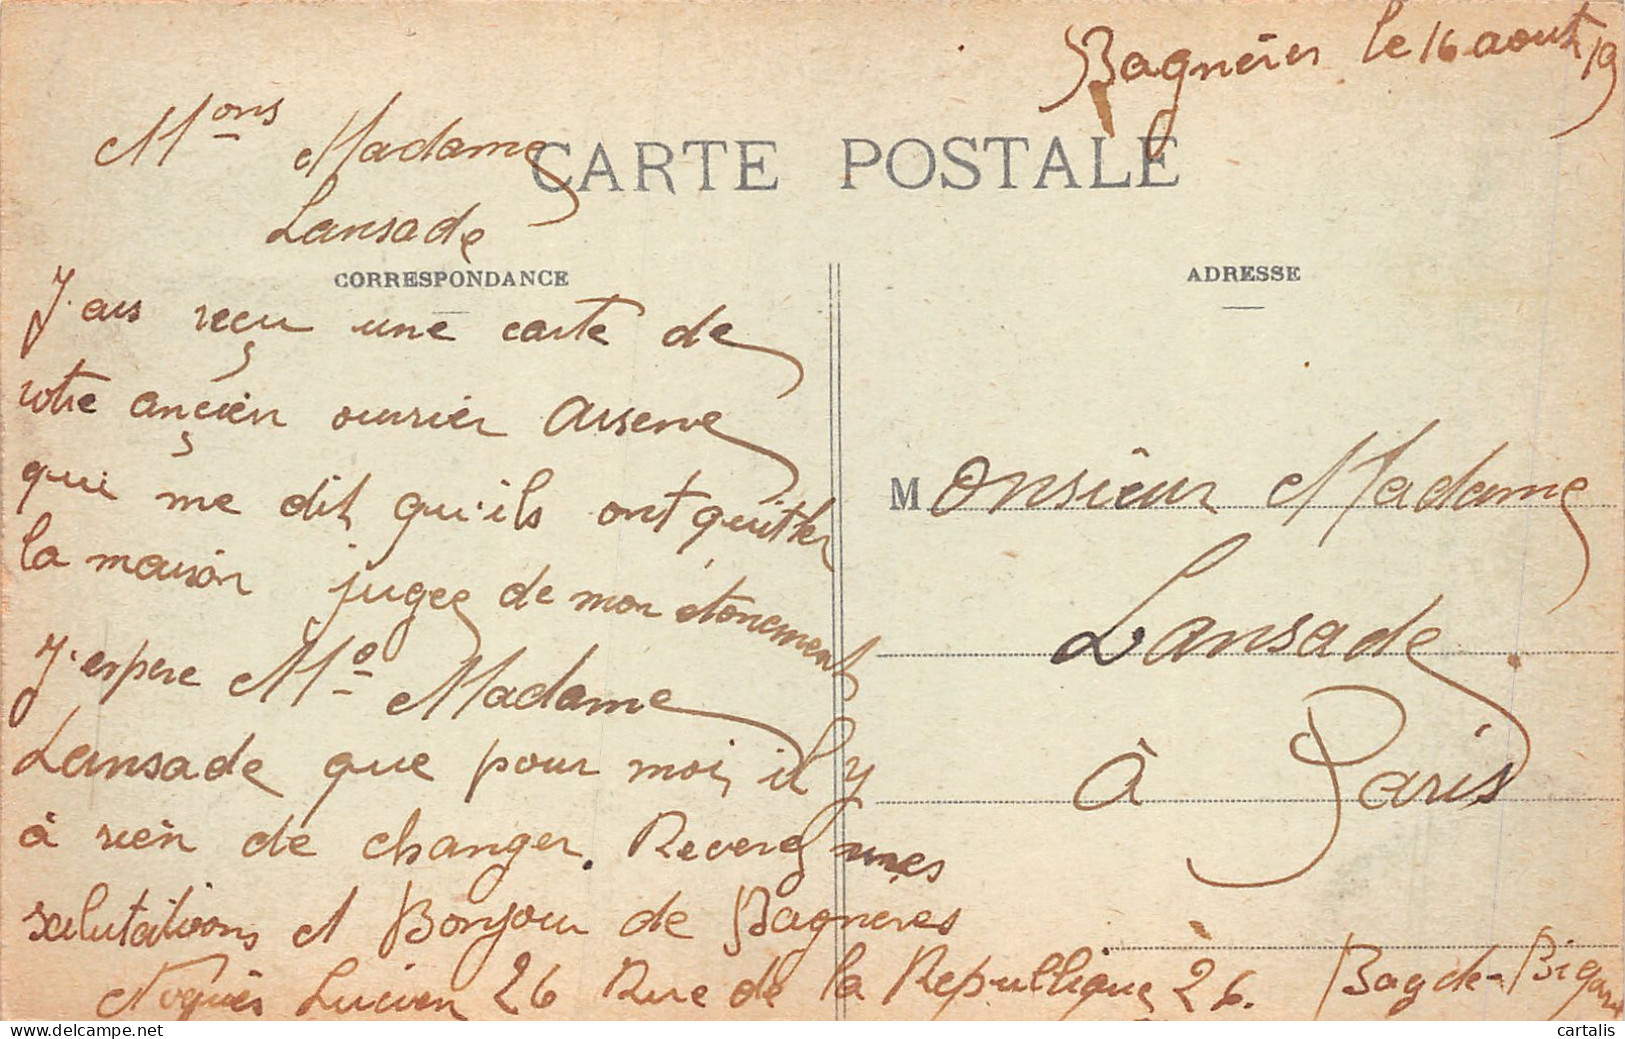 Bagnères le 16 aout 19
Mons Madame
CARTE POSTALE
Lansade
CORRESPONDANCE
J'ais reçu une carte de
votre ançien ouvrier Arsene
qui me dit qu'ils ont quitter
la maison jugee de mon étonement
J'espere Mo Madame
Lansade que pour moi, il y
à rien de changer. Reverez mes
salutations et Bonjour de Bagnères
Noguès Lucien 26 Rue de la Republique 26. Bag de-Bigorre
ADRESSE
Monsieur Madame
Lansade
à Paris
cartalis
www.delcampe.net